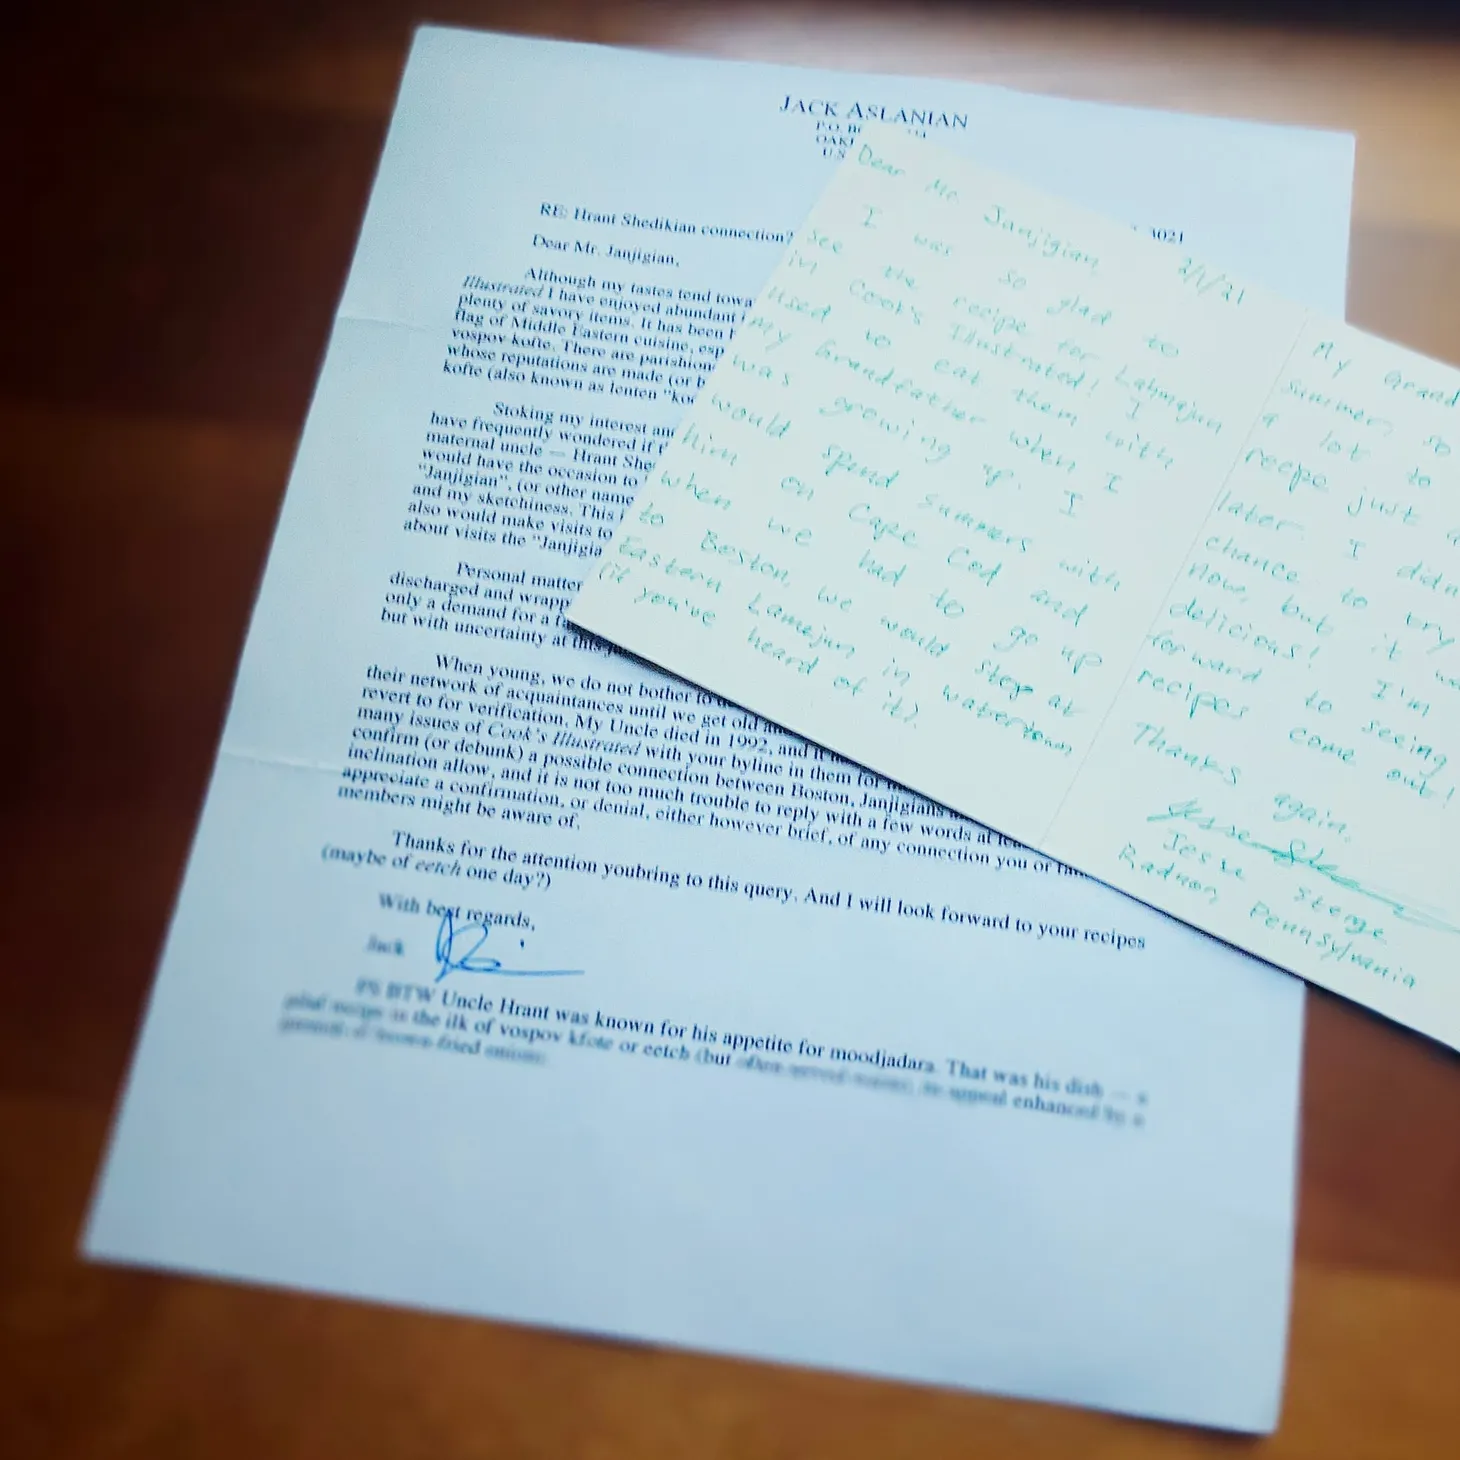 JACK ASLANIAN
P.O.
OAK
U.S
RE: Hrant Shedikian connection?
Dear Mr. Janjigian,
Although my tastes tend towa
Illustrated I have enjoyed abundant
plenty of savory items. It has been
flag of Middle Eastern cuisine, esp
vospov kofte. There are parishion
whose reputations are made (or b
kofte (also known as lenten "ko
Stoking my interest an
have frequently wondered if
maternal uncle — Hrant She
would have the occasion to
"Janjigian", (or other name
and my sketchiness. This
also would make visits to
about visits the "Janjigia
Personal matter
discharged and wrapp
only a demand for a
but with uncertainty at this
When young, we do not bother to
their network of acquaintances until we get old
revert to for verification. My Uncle died in 1992, and it
many issues of Cook's Illustrated with your byline in them for
confirm (or debunk) a possible connection between Boston, Janjigians
inclination allow, and it is not too much trouble to reply with a few words at
appreciate a confirmation, or denial, either however brief, of any connection you or
members might be aware of.
Thanks for the attention youbring to this query. And I will look forward to your recipes
(maybe of eetch one day?)
With best regards,
Jack
PS BTW Uncle Hrant was known for his appetite for moodjadara. That was his dish —
is the ilk of vospov kfote or eetch (but often served warm), its appeal enhanced by a
brown-fried onions
Dear Mr. Janjigian, 2/1/21
I was so glad to
see the recipe for Lahmajun
in Cook's Illustrated! I
used to eat them with
my Grandfather when I
was growing up. I
would spend summers with
him on Cape Cod and
when we had to go up
to Boston, we would stop at
Eastern Lamejun in Watertown
(if you've heard of it).
My Grand
summer, so
a lot to
recipe just a
later. I didn
chance to try
now, but it wa
delicious! I'm
forward to seeing
recipes come out!
Thanks again,
Jesse Sterge
Radnor, Pennsylvania